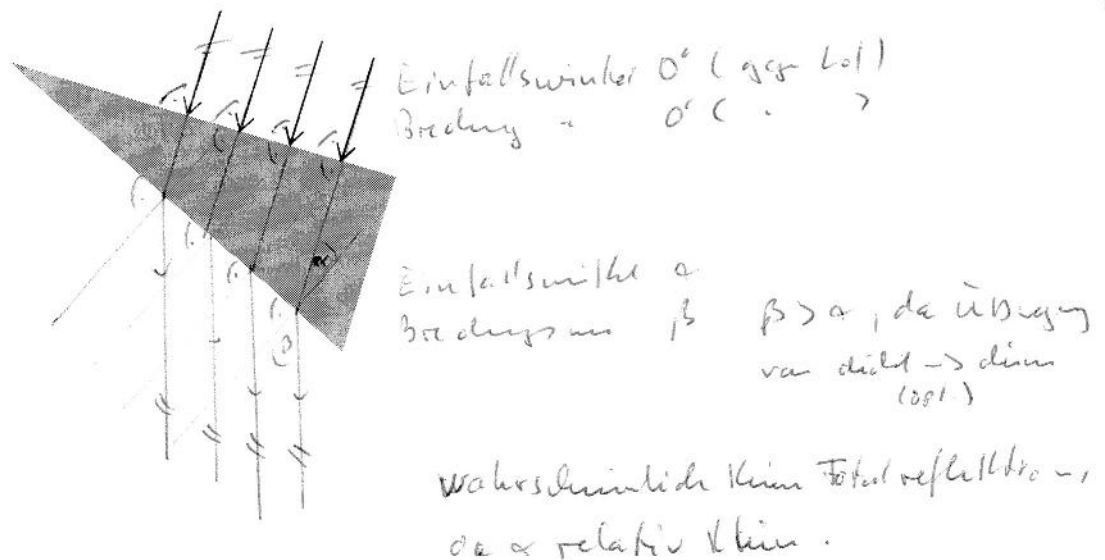 Einfallswinkel 0° (
Brechung " 0° ( " )
α
Einfallswinkel α
β β > α, da Übergang
von dicht -> dünn
(opt.)
β
wahrscheinlich kein Totalreflektion,
da α relativ klein.